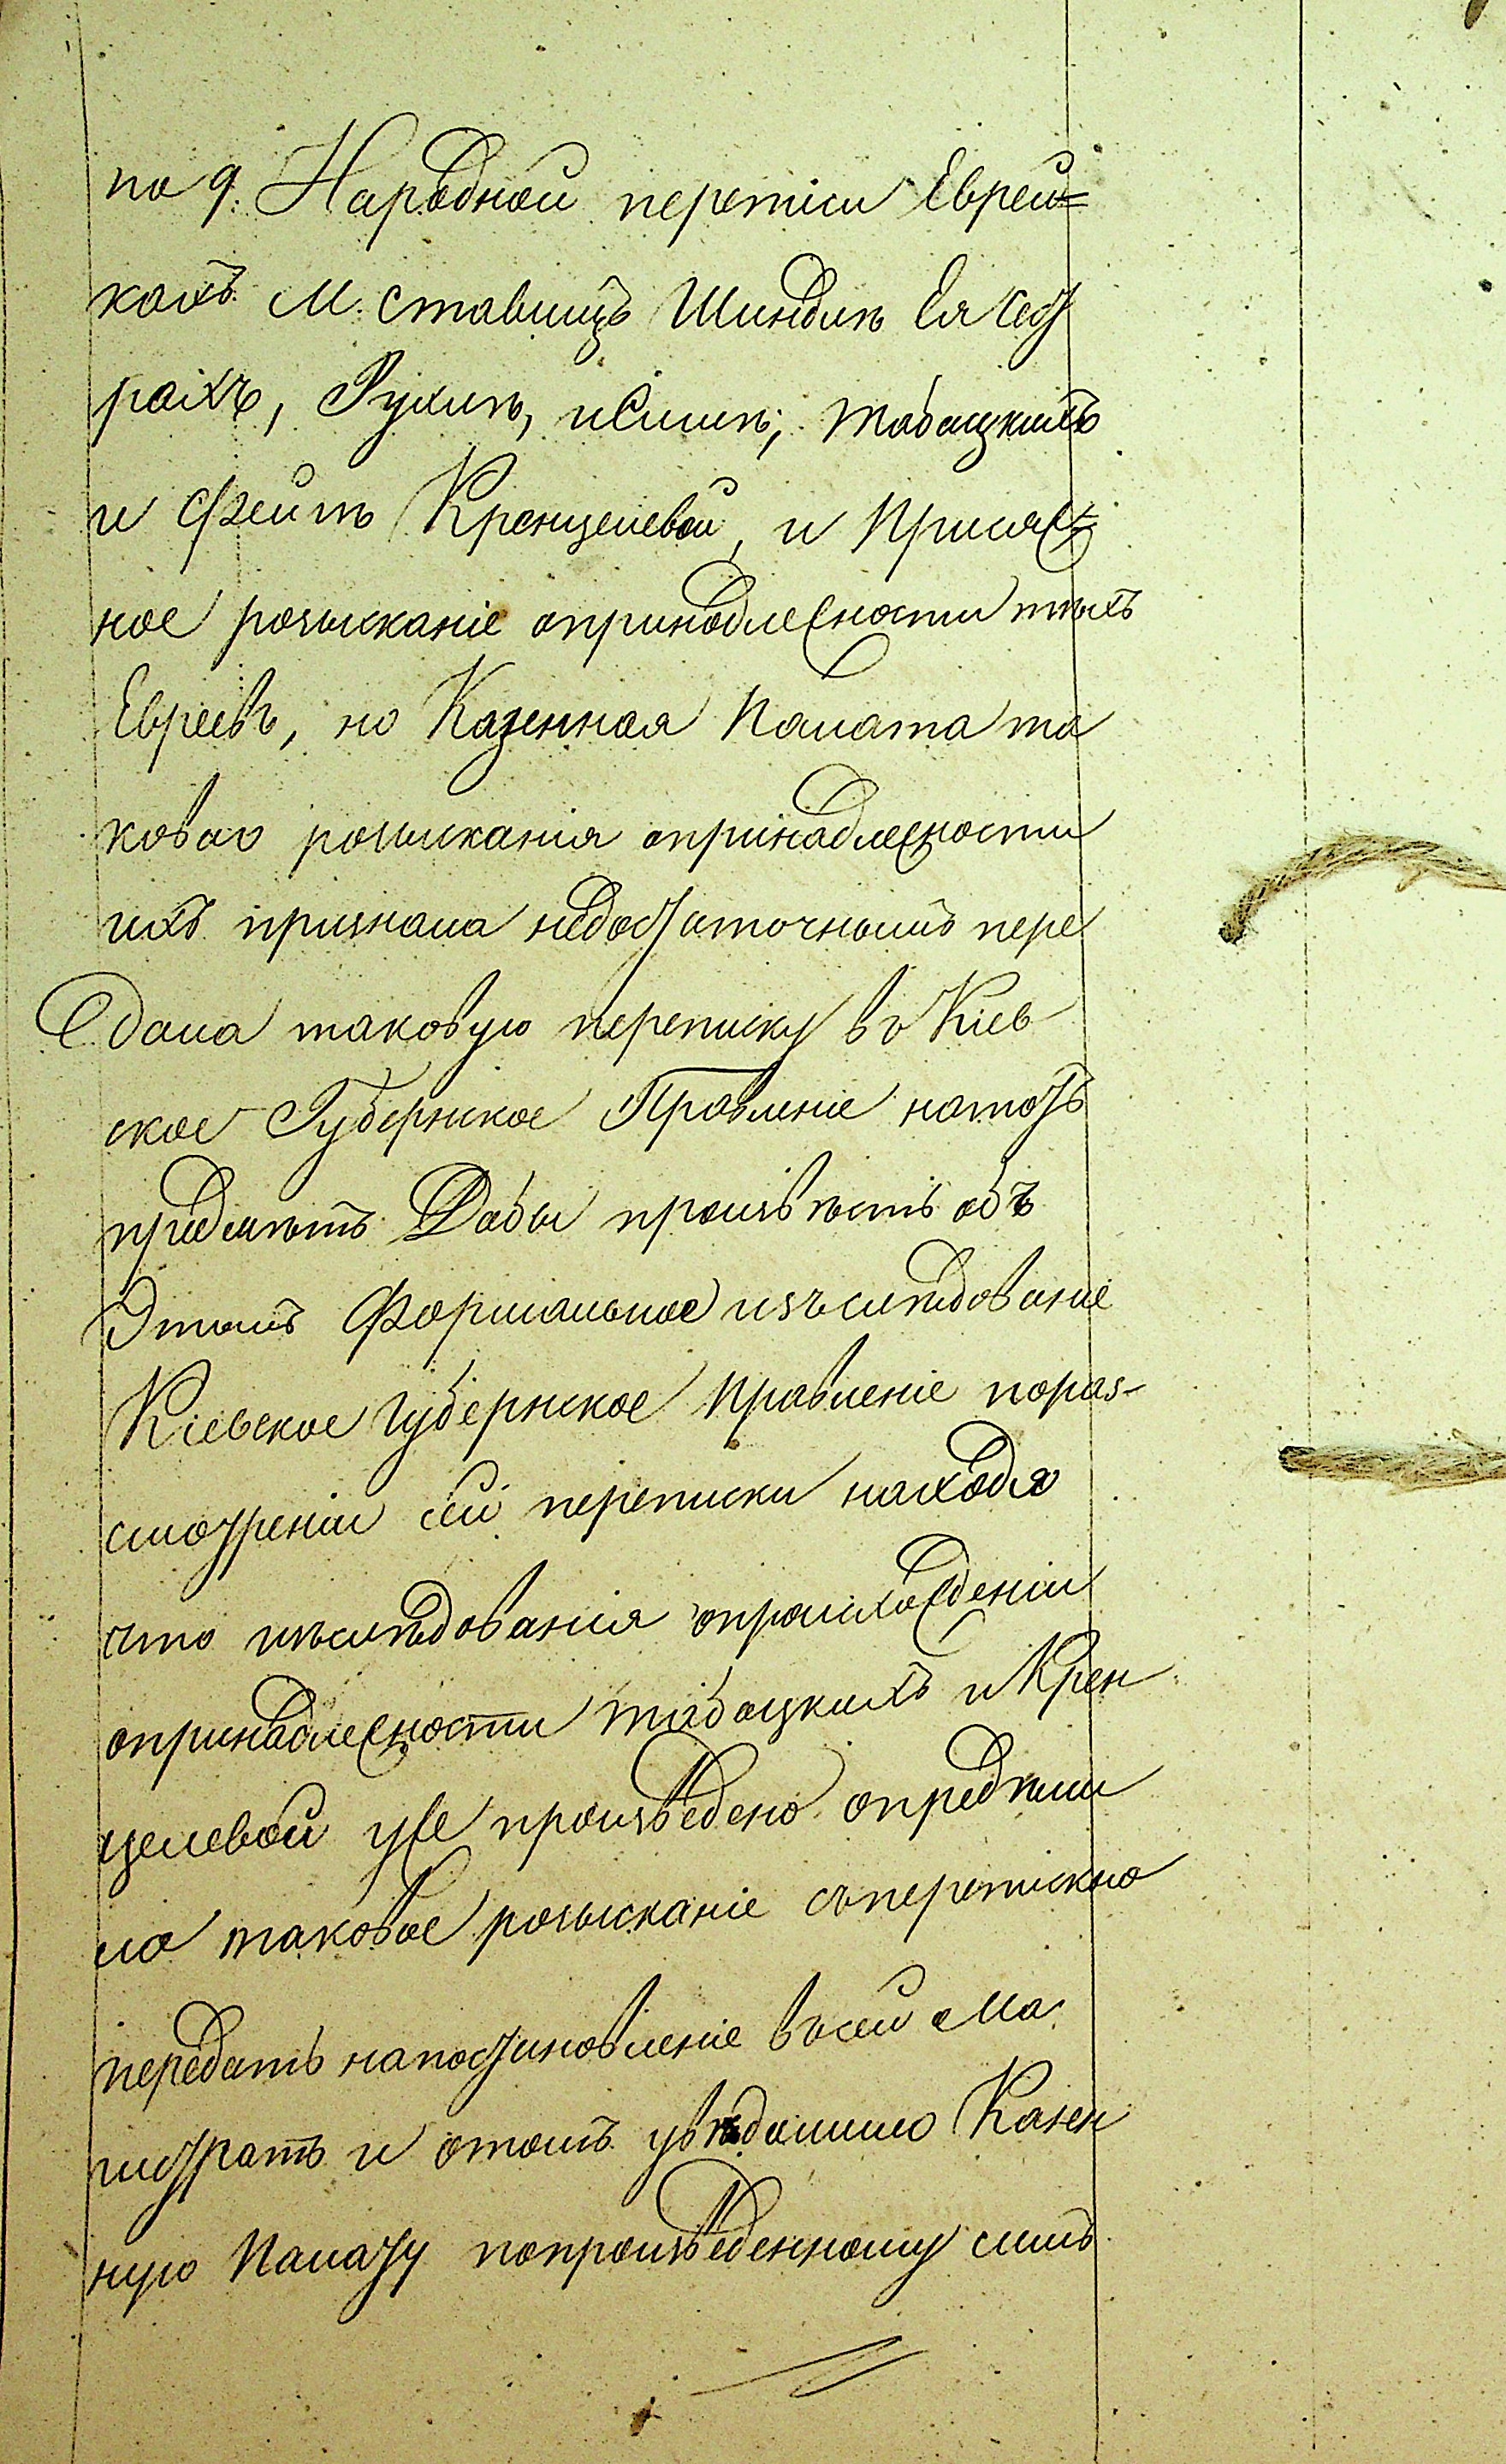 по 9. Народной переписи Еврей=
кахъ м. Ставищъ Шиндли Ея сест
рахъ, Рухли, и Симѣ, Табацкихъ
и Фейгѣ Кренцелевой, и присяж=
ное розысканіе опринадлежности тѣхъ
Евреевъ, но Казенная Палата та
коваго розысканія опринадлежности
ихъ признала недостаточнымъ пере
дала таковую переписку въ Кіев
ское Губернское Правленіе натотъ
предмѣтъ Дабы произвѣсть объ
Этомъ Формальное изъслѣдованіе
Кіевское Губернское Правленіе пораз-
смотреніи сей переписки находя
что изъслѣдованія опроисхожденіи
опринадлежности Табацкихъ и Крен
целевой уже произведено опредѣли
ло таковое розысканіе съперепискою
передать напостановленіе въсей Ма
гистратъ и отомъ увѣдомило Казен
ную Палату попроизведенному симъ